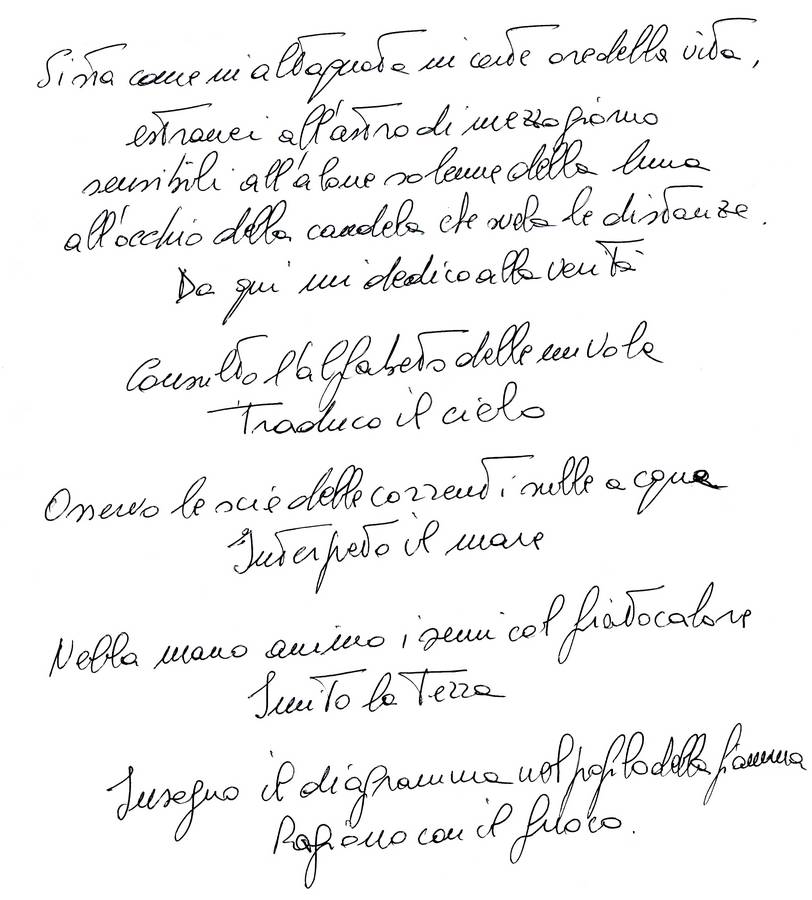 Si sta come in alta quota in certe ore della vita,
estranei all'astro di mezzogiorno
sensibili all'alone solenne della luna
all'occhio della candela che svela le distanze.
Da qui mi dedico alla verità
Consulto l'alfabeto delle nuvole
Traduco il cielo
Osservo le scie delle correnti sulle acque
Interpreto il mare
Nella mano animo i semi col fiato calore
Imito la Terra
Insegno il diagramma nel profilo della fiamma
Ragiono con il fuoco.